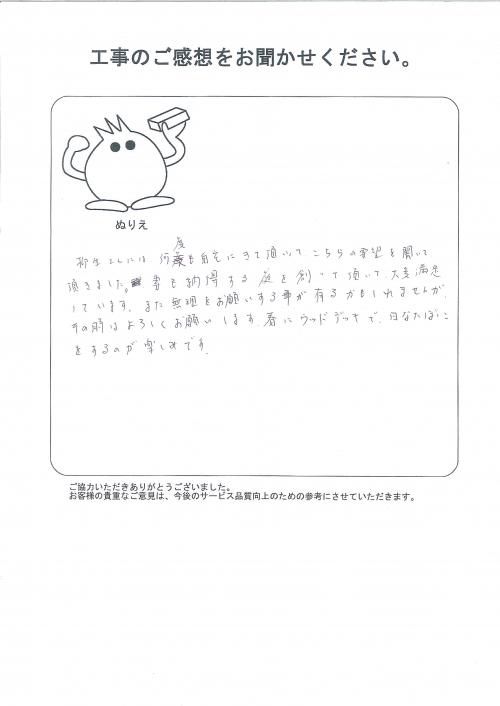 工事のご感想をお聞かせください。
ぬりえ
柳生さんには何度も自宅にきて頂いて、こちらの希望を聞いて
頂きました。妻も納得する庭を創って頂いて、大変満足
しています。また無理をお願いする事が有るかもしれませんが、
その時はよろしくお願いします。春にウッドデッキで、日なたぼっこ
をするのが楽しみです。
ご協力いただきありがとうございました。
お客様の貴重なご意見は、今後のサービス品質向上のための参考にさせていただきます。